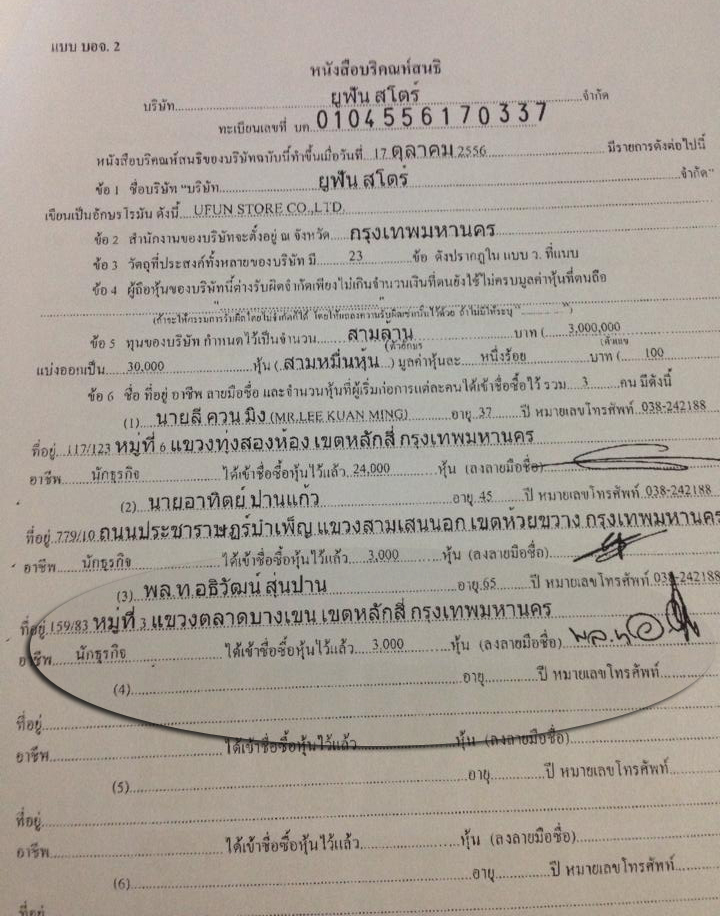 แบบ บอจ. 2
หนังสือบริคณห์สนธิ
บริษัท ยูฟัน สโตร์ จำกัด
ทะเบียนเลขที่ บค. 0104556170337
หนังสือบริคณห์สนธิของบริษัทฉบับนี้ทำขึ้นเมื่อวันที่ 17 ตุลาคม 2556 มีรายการดังต่อไปนี้
ข้อ 1 ชื่อบริษัท "บริษัท ยูฟัน สโตร์ จำกัด"
เขียนเป็นอักษรโรมัน ดังนี้ UFUN STORE CO.,LTD.
ข้อ 2 สำนักงานของบริษัทจะตั้งอยู่ ณ จังหวัด กรุงเทพมหานคร
ข้อ 3 วัตถุที่ประสงค์ทั้งหลายของบริษัท มี 23 ข้อ ดังปรากฏใน แบบ ว. ที่แนบ
ข้อ 4 ผู้ถือหุ้นของบริษัทนี้ต่างรับผิดจำกัดเพียงไม่เกินจำนวนเงินที่ตนยังใช้ไม่ครบมูลค่าหุ้นที่ตนถือ
ข้อ 5 ทุนของบริษัท กำหนดไว้เป็นจำนวน สามล้าน บาท ( 3,000,000
(ตัวอักษร (ตัวเลข
แบ่งออกเป็น 30,000 หุ้น ( สามหมื่นหุ้น ) มูลค่าหุ้นละ หนึ่งร้อย บาท ( 100
ข้อ 6 ชื่อ ที่อยู่ อาชีพ ลายมือชื่อ และจำนวนหุ้นที่ผู้เริ่มก่อการแต่ละคนได้เข้าชื่อซื้อไว้ รวม 3 คน มีดังนี้
(1) นายลี ควน มิง (MR.LEE KUAN MING) อายุ 37 ปี หมายเลขโทรศัพท์ 038-242188
ที่อยู่ 117/123 หมู่ที่ 6 แขวงทุ่งสองห้อง เขตหลักสี่ กรุงเทพมหานคร
อาชีพ นักธุรกิจ ได้เข้าชื่อซื้อหุ้นไว้แล้ว 24,000 หุ้น (ลงลายมือชื่อ)
(2) นายอาทิตย์ ปานแก้ว อายุ 45 ปี หมายเลขโทรศัพท์ 038-242188
ที่อยู่ 779/10 ถนนประชาราษฎร์บำเพ็ญ แขวงสามเสนนอก เขตห้วยขวาง กรุงเทพมหานคร
อาชีพ นักธุรกิจ ได้เข้าชื่อซื้อหุ้นไว้แล้ว 3,000 หุ้น (ลงลายมือชื่อ)
(3) พล.ท.อธิวัฒน์ สุ่นปาน อายุ 65 ปี หมายเลขโทรศัพท์ 038-242188
ที่อยู่ 159/83 หมู่ที่ 3 แขวงตลาดบางเขน เขตหลักสี่ กรุงเทพมหานคร
อาชีพ นักธุรกิจ ได้เข้าชื่อซื้อหุ้นไว้แล้ว 3,000 หุ้น (ลงลายมือชื่อ) พล.ท.
(4) อายุ ปี หมายเลขโทรศัพท์
ที่อยู่
อาชีพ ได้เข้าชื่อซื้อหุ้นไว้แล้ว หุ้น (ลงลายมือชื่อ)
(5) อายุ ปี หมายเลขโทรศัพท์
ที่อยู่
อาชีพ ได้เข้าชื่อซื้อหุ้นไว้แล้ว หุ้น (ลงลายมือชื่อ)
(6) อายุ ปี หมายเลขโทรศัพท์
ที่อยู่